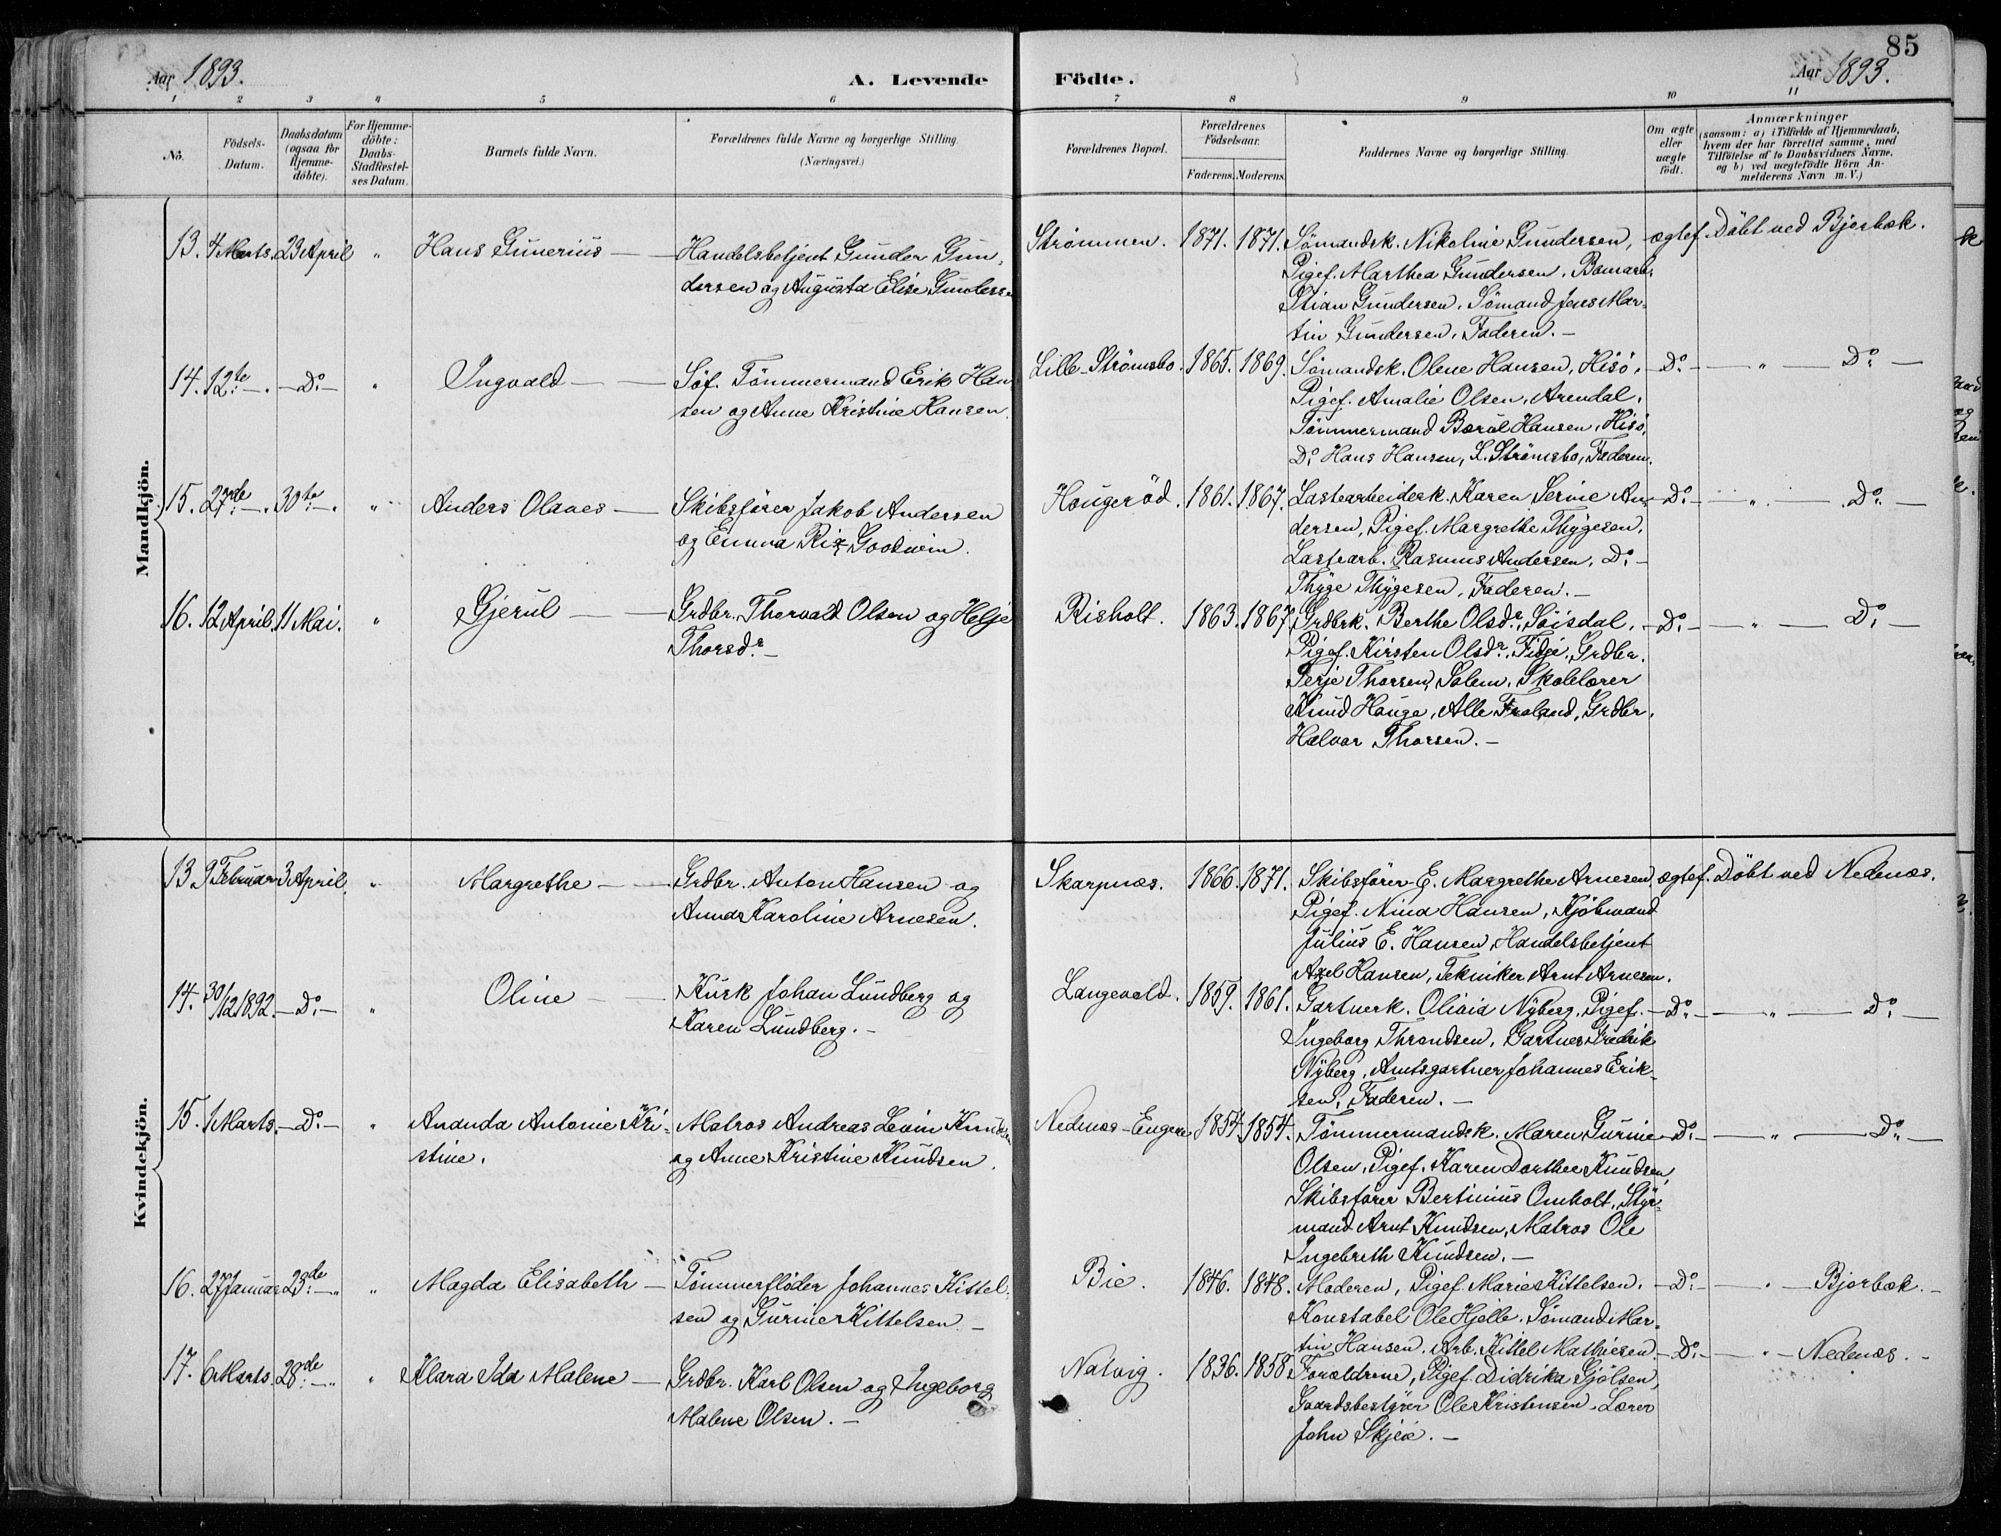 85
Aar 1893.
A. Levende Födte.
Aar 1893.
1 2 3 4 5 6 7 8 9 10 11
No.
Födsels-
Datum.
Daabsdatum
(ogsaa for
Hjemme-
döbte).
For Hjemme-
döbte:
Daabs-
Stadfæstel-
ses Datum.
Barnets fulde Navn.
Forældrenes fulde Navne og borgerlige Stilling.
(Næringsvei.)
Forældrenes Bopæl.
Forældrenes
Födselsaar.
Faderens. Moderens.
Faddernes Navne og borgerlige Stilling.
Om ægte
eller
uægte
födt.
Anmærkninger
(saasom: a) i Tilfælde af Hjemmedaab,
hvem der har forrettet samme, med
Tilföielse af to Daabsvidners Navne,
og b) ved uægtefödte Börn An-
melderens Navn m. V.)
Mandkjön.
13. 4 Marts. 23 April " Hans Gunerius —
Handelsbetjent Gunder Gun-
dersen og Augusta Elise Gundersen
Strømmen. 1871. 1871.
Sømandsk. Nikoline Gundersen,
Pigef. Marthea Gundersen, Bomarb.
Stian Gundersen, Sømand Jens Mar-
tin Gundersen, Faderen. —
ægtef. Döbt ved Bjorbæk.
14. 12te — — Do — " Ingvald —
Søf. Tömmermand Erik Han-
sen og Anne Kristine Hansen.
Lille-Strømsbo. 1865. 1869.
Sømandsk. Olene Hansen, Hisö,
Pigef. Amalie Olsen, Arendal,
Tömmermand Hansen, Hisö,
Do Hans Hansen, L. Strømsbo, Faderen.
— Do — " — Do —
15. 27de — 30te — " Anders Olaves —
Skibsfører Jakob Andersen
og Emma Goodwin.
Hougerød. 1861. 1867.
Lastearbeiderk. Karen Serine An-
dersen, Pigef. Margrethe Thygesen,
Lastearb. Rasmus Andersen, Do —
Thyge Thygesen, Faderen. —
— Do — " — Do —
16. 12 April. 11 Mai. " Gjerul —
Grdbr. Thorvald Olsen og Helje
Thorsdr —
Risholt. 1863. 1867.
Grdbrk. Berthe Olsdr, Söisdal,
Pigef. Kirsten Olsdr, Fidje, Grdbr.
Terje Thorsen, Solem, Skolelærer
Knud Houge, Alle Froland, Grdbr.
Halvor Thorsen. —
— Do — " — Do —
Kvindekjön.
13 9 Februar 3 April. " Margrethe —
Grdbr. Anton Hansen og
Anna Karoline Arnesen.
Skarpnæs. 1866. 1871.
Skibsfører-E. Margrethe Arnesen
Pigef. Nina Hansen, Kjöbmand
Julius E. Hansen, Handelsbetjent
Axel Hansen, Tekniker Arnt Arnesen.
ægtef. Döbt ved Nedenæs.
14. 30/12 1892. — Do — " Oline —
Kusk Johan Lundberg og
Karen Lundberg. —
Langevold. 1859. 1861.
Gartnerk. Olivia Nyberg, Pigef.
Ingeborg Throndsen, Gartner Fredrik
Nyberg, Amtsgartner Johannes Erik-
sen, Faderen. —
— Do — " — Do —
15. 1 Marts. — Do — " Ananda Antonie Kri-
stine.
Matros Andreas Levin Knudsen
og Anne Kristine Knudsen.
Nedenæs-Engene 1854. 1854.
Tömmermandsk. Maren Gurine
Olsen, Pigef. Karen Dorthea Knudsen,
Skibsfører Bertinius Omholt, Styr-
mand Arnt Knudsen, Matros Ole
Ingebreth Knudsen. —
— Do — " — Do —
16. 27 Januar 23de — " " Magda Elisabeth —
Tømmerfløder Johannes Kittel-
sen og Gurine Kittelsen. —
Bie. 1846. 1848.
Moderen, Pigef. Marie Kittelsen,
Konstabel Ole Hjelle. Sømand Mar-
tin Hansen. Arb. Kittel Mathiesen.
— Do — " — Bjorbæk. —
17. 6 Marts. 28de — " " Klara Ida Malene —
Grdbr. Karl Olsen og Ingeborg
Malene Olsen. —
Natvig. 1836. 1858
Forældrene, Pigef. Didrika Gjölsen,
Gaardsbestyrer Ole Kristensen. Lærer
John Skjeie. —
— Do — " — Nedenæs. —